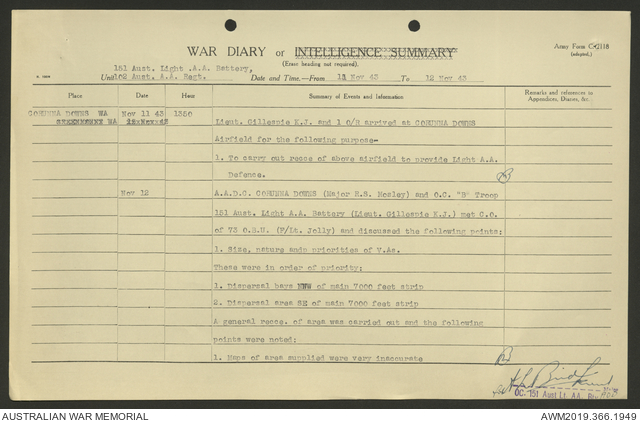 Army Form C.2118
(adapted.)
WAR DIARY or INTELLIGENCE SUMMARY
(Erase heading not required).
151 Aust. Light .A.A. Battery,
Unit 102 Aust. A.A. Regt. Date and Time.—From 11 Nov 43 To 12 Nov 43
Place Date Hour Summary of Events and Information Remarks and references to Appendices, Diaries, &c.
CORUNNA DOWNS WA Nov 11 43 1350 Lieut. Gillespie K.J. and 1 O/R arrived at CORUNNA DOWNS
Airfield for the following purpose-
1. To carry out recce of above airfield to provide Light A.A.
Defence.
Nov 12 A.A.D.C. CORUNNA DOWNS (Major R.S. Mosley) and O.C. "B" Troop
151 Aust. Light A.A. Battery (Lieut. Gillespie K.J.) met C.O.
of 73 O.B.U. (F/Lt. Jolly) and discussed the following points:
1. Size, nature ands priorities of V.As.
These were in order of priority:
1. Dispersal bays NNW of main 7000 feet strip
2. Dispersal area SE of main 7000 feet strip
A general recce. of area was carried out and the following
points were noted:
1. Maps of area supplied were very inaccurate
OC. 151 Aust Lt. AA. Bty
AUSTRALIAN WAR MEMORIAL AWM2019.366.1949